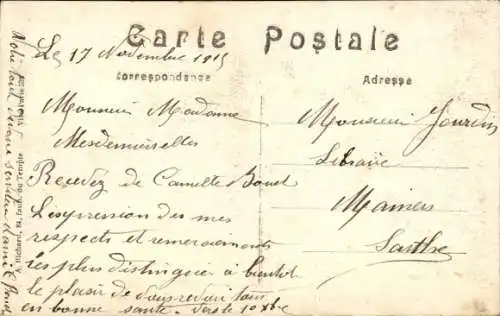 Carte Postale
Correspondance
Adresse
Le 17 Novembre 1915
Monsieur Madame
Mesdemoiselles
Recevez de Camille
L'expression des mes
respects et remerciements
Les plus distinguée à bientôt
le plaisir de vous revoir tous
en bonne santé. vers le 10 Xbre
Monsieur Jourdin
Libraire
Mamers
Sarthe
A. Richard, 84, faub. du Temple